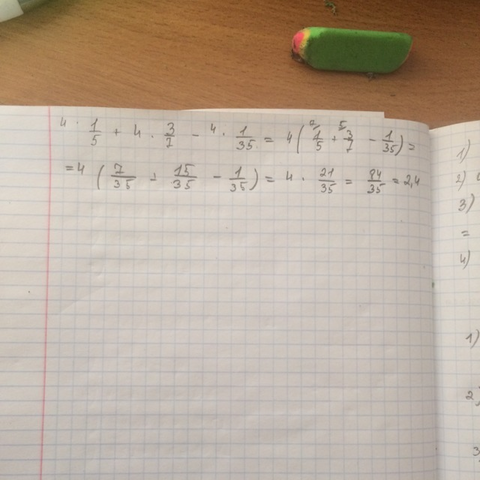 4 · 1/5 + 4 · 3/7 - 4 · 1/35 = 4 ( 1/5 + 3/7 - 1/35 ) =
= 4 ( 7/35 + 15/35 - 1/35 ) = 4 · 21/35 = 84/35 = 2,4
1)
2)
3)
=
4)
1)
2)
3)